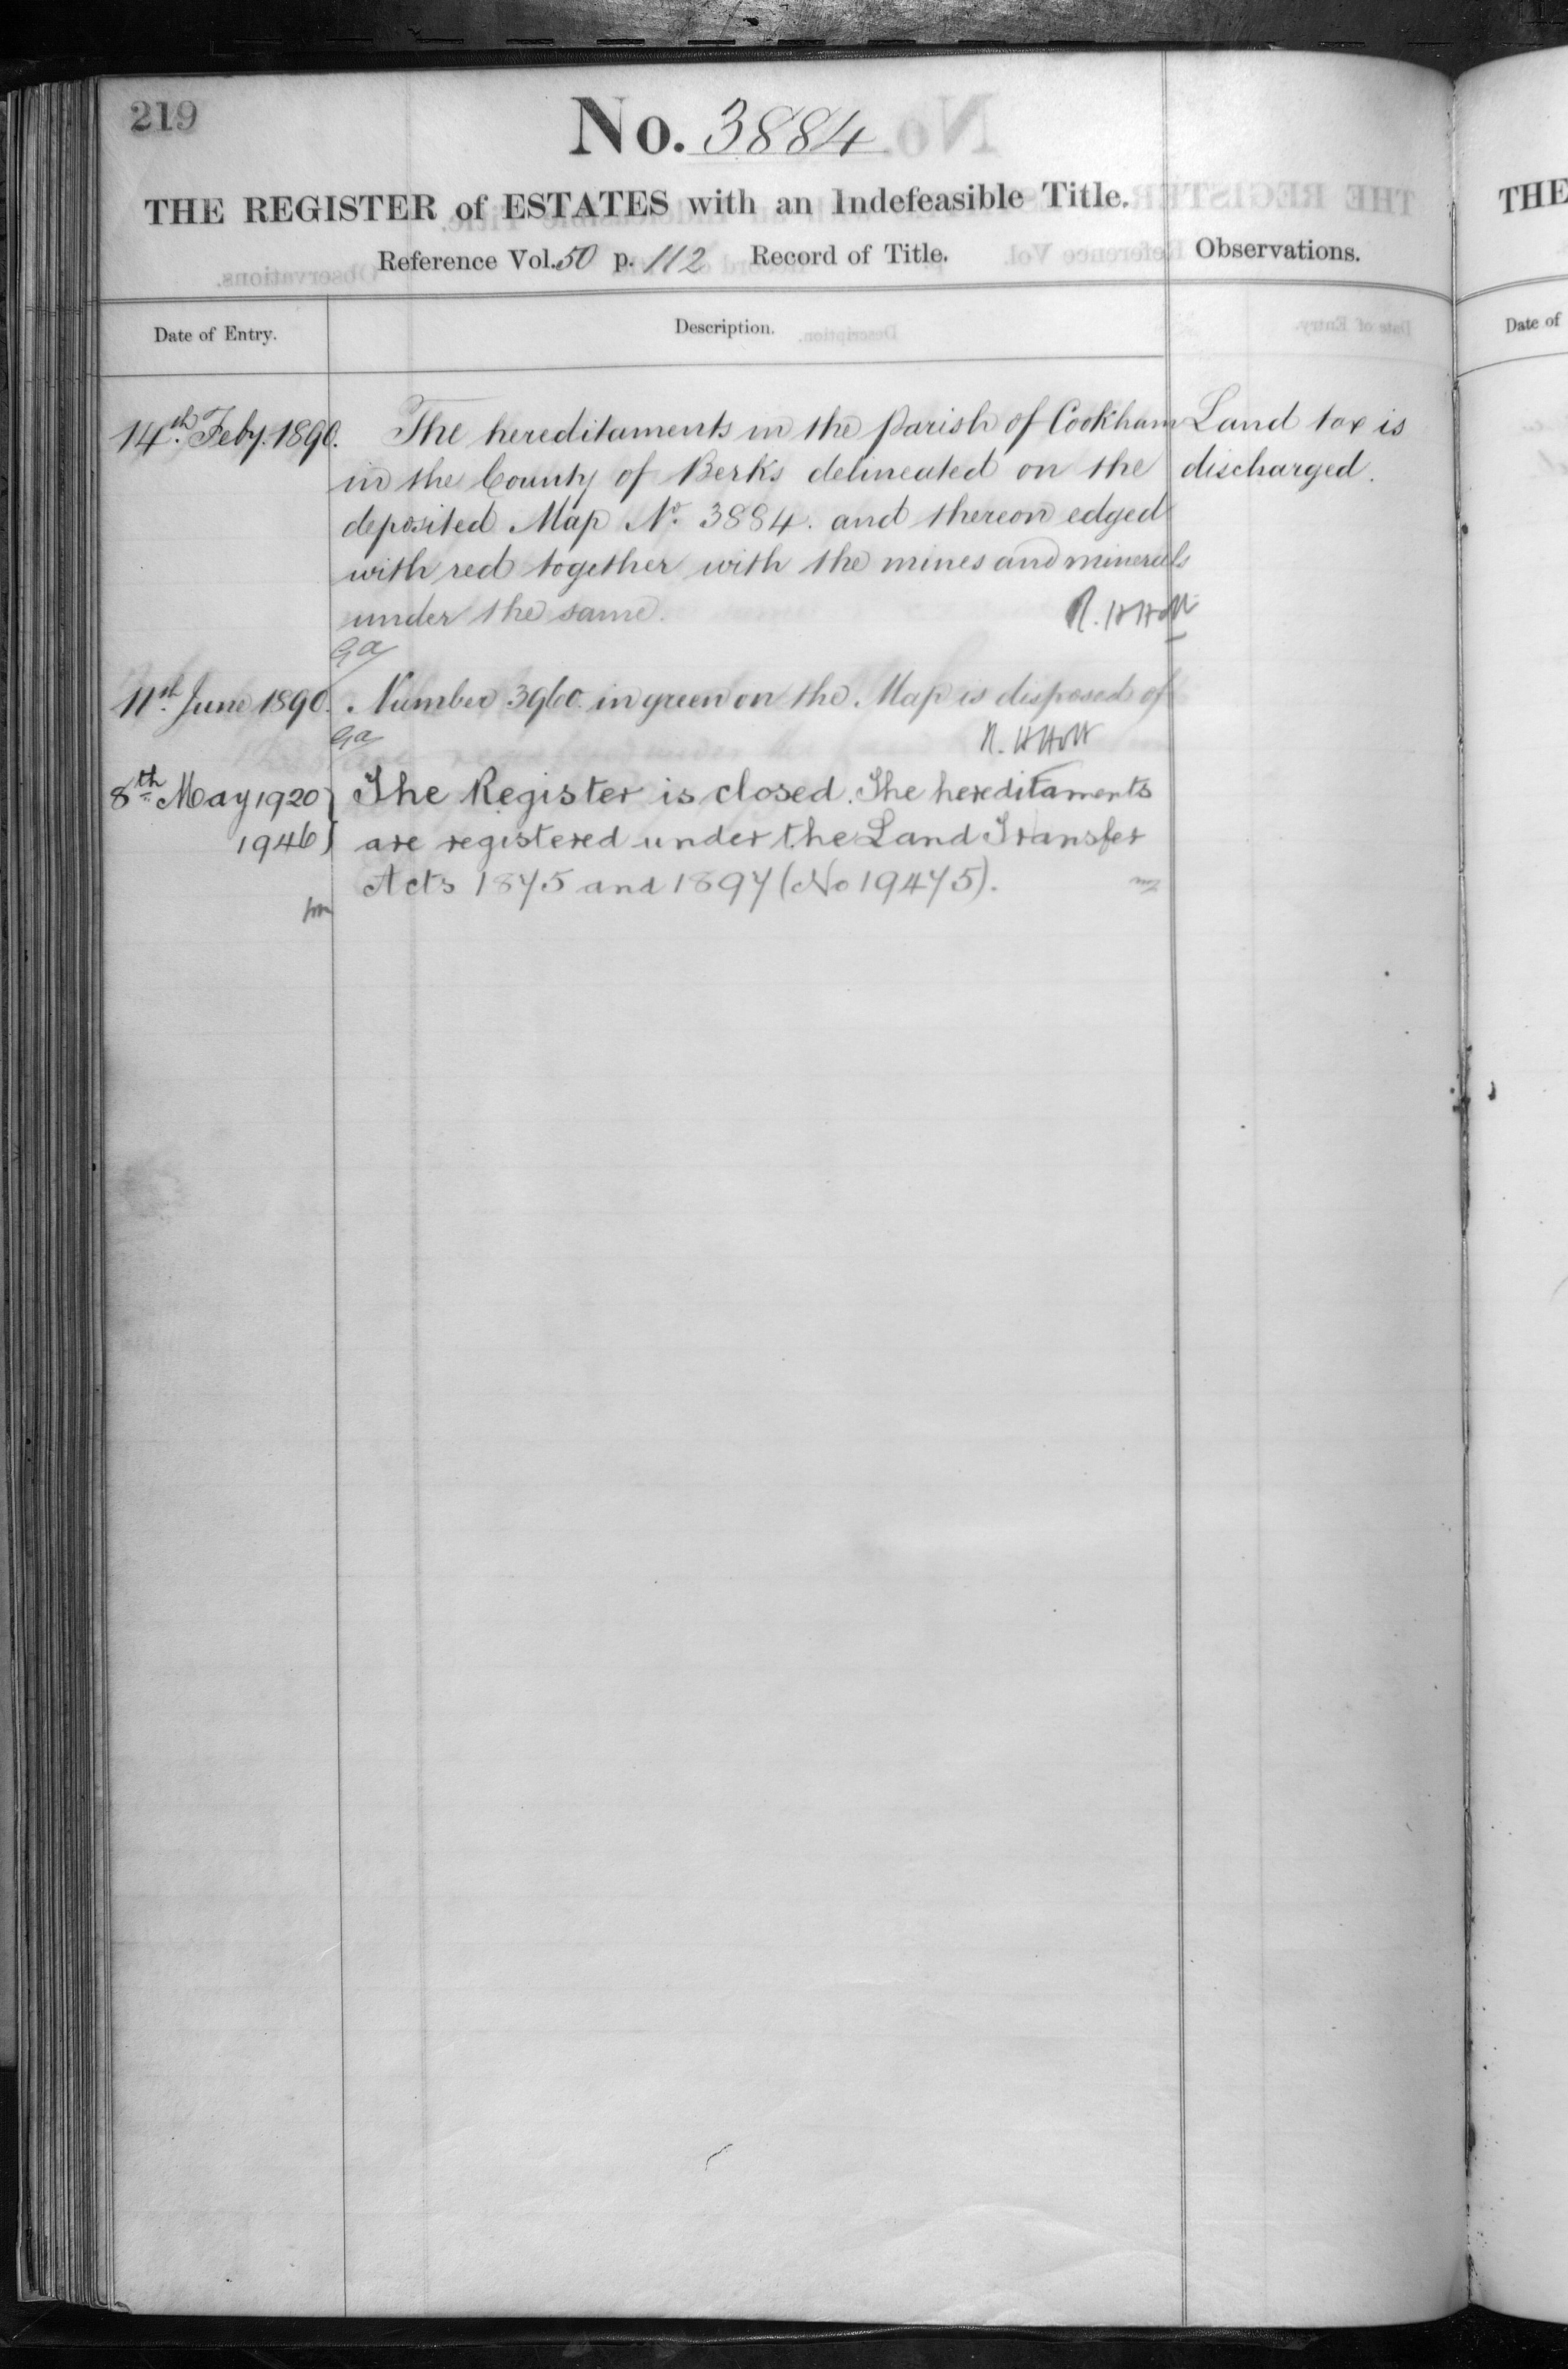 219
No. 3884
THE REGISTER of ESTATES with an Indefeasible Title.
Reference Vol. 50 p. 112 Record of Title.
Observations.
Date of Entry.
Description.
14th Feby. 1890.
The hereditaments in the Parish of Cookham
in the County of Berks delineated on the
deposited Map No. 3884. and thereon edged
with red together with the mines and minerals
under the same.
Land tax is
discharged.
R. H Holt
Ga
11th June 1890.
Number 3960. in green on the Map is disposed of
R. H Holt
Ga
8th May 1920
1946
The Register is closed. The hereditaments
are registered under the Land Transfer
Acts 1875 and 1897 (No 19475).
THE
Date of